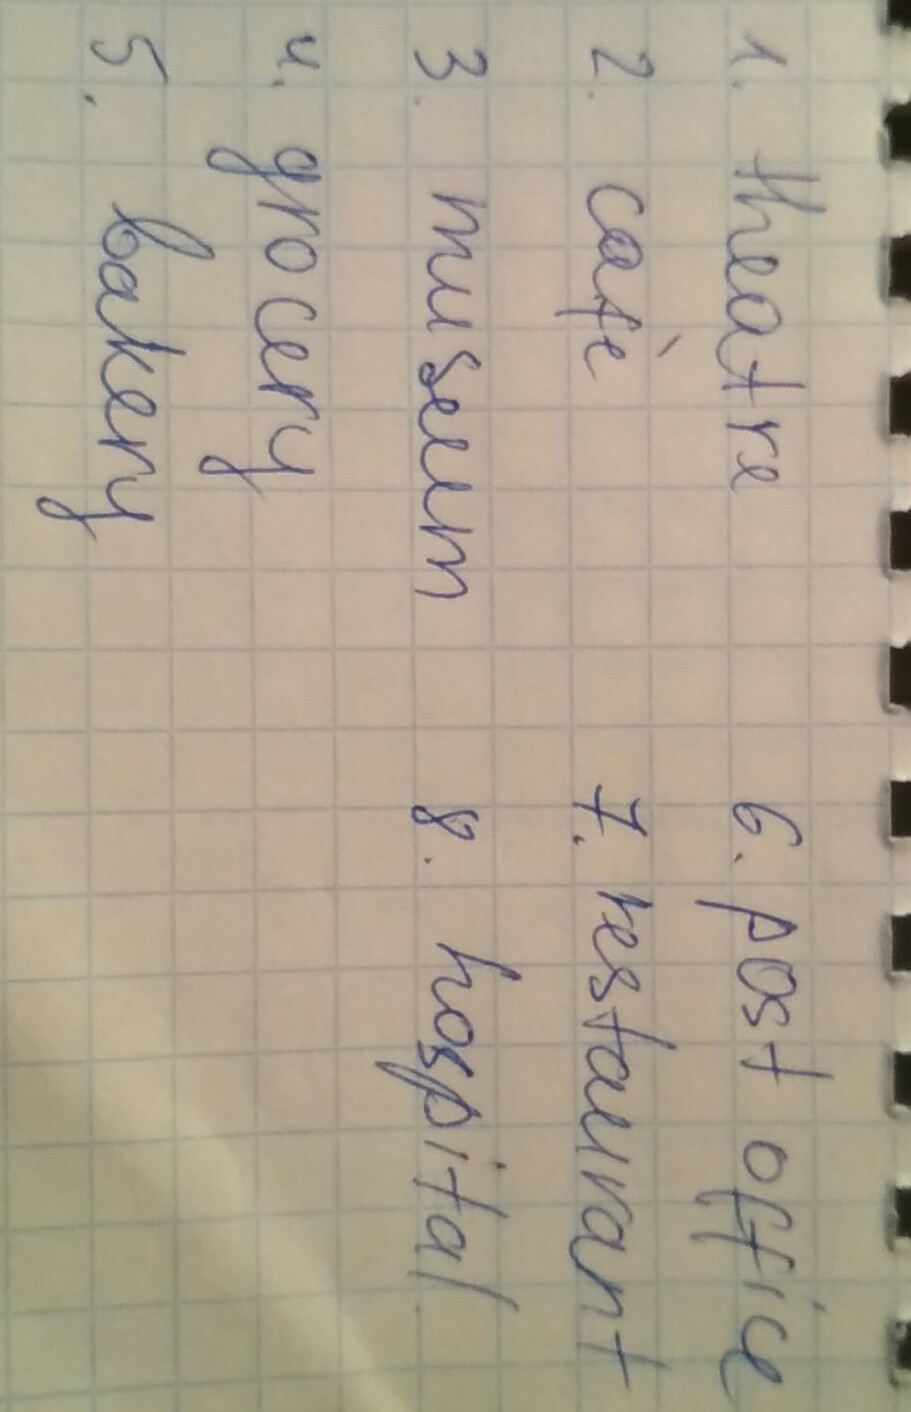 1. theatre
2. cafè
3. museum
4. grocery
5. bakery
6. post office
7. restaurant
8. hospital